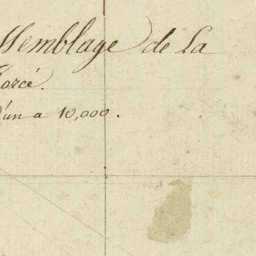 ssemblage de la
orcé.
'un a 10,000.